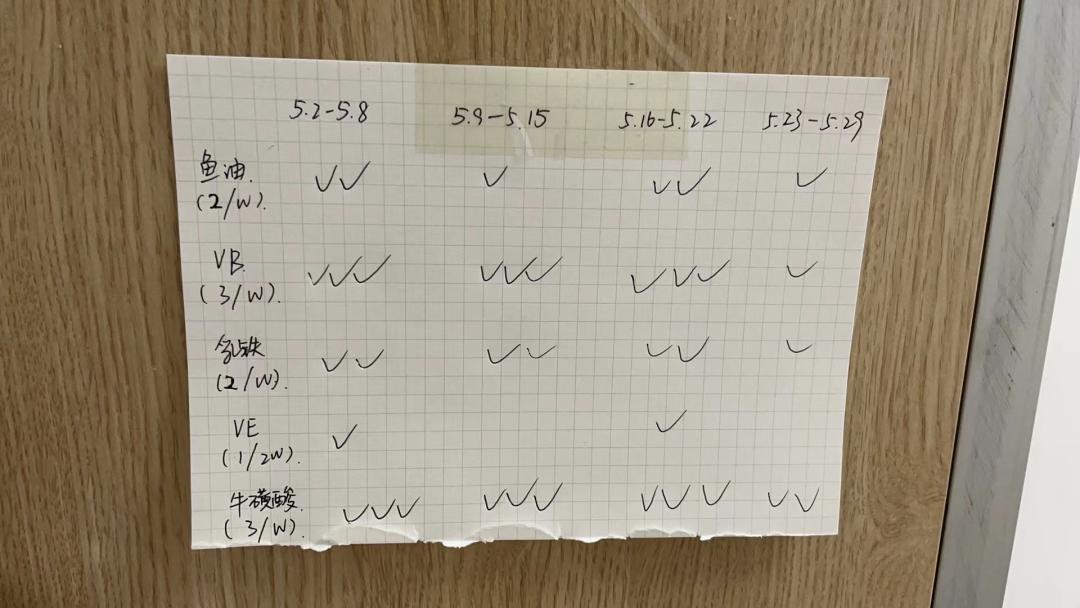 5.2-5.8 5.9-5.15 5.16-5.22 5.23-5.29
鱼油. ✓✓ ✓ ✓✓ ✓
(2/W).
VB. ✓✓✓ ✓✓✓ ✓✓✓ ✓
(3/W).
乳铁 ✓✓ ✓✓ ✓✓ ✓
(2/W).
VE ✓ ✓
(1/2W).
牛磺酸. ✓✓✓ ✓✓✓ ✓✓✓ ✓✓
(3/W).